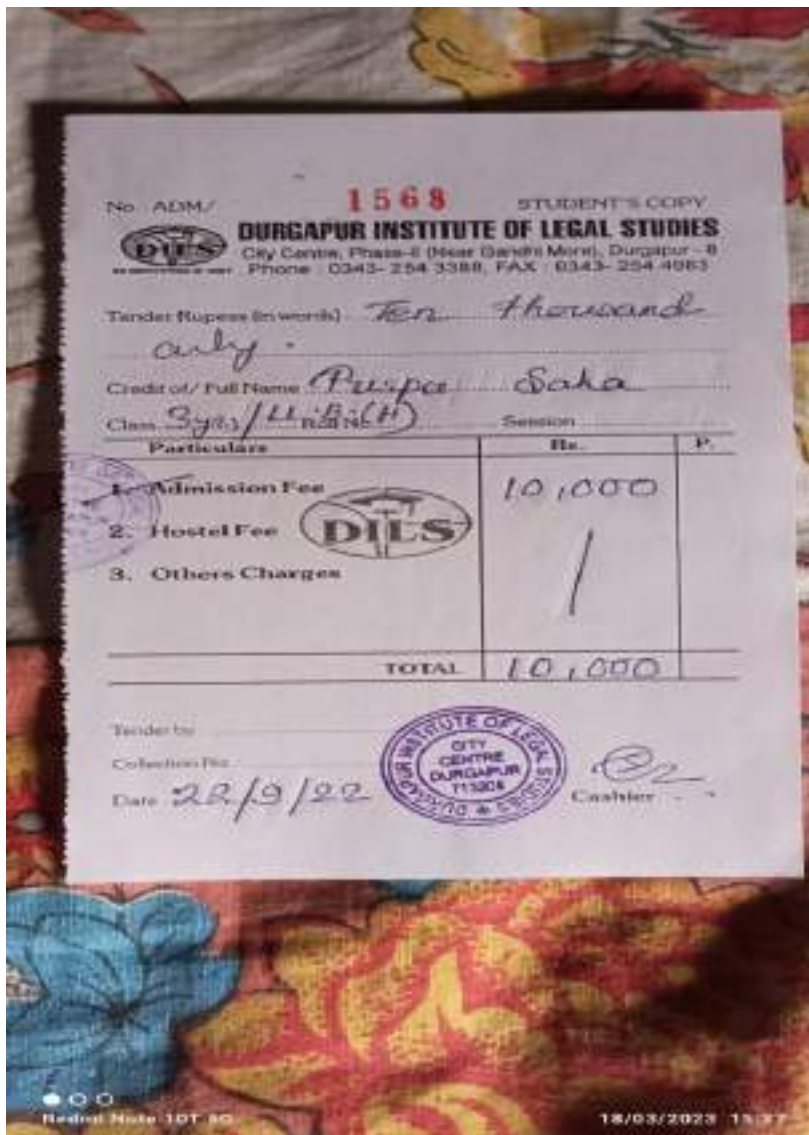 No. ADM/ 1568 STUDENT'S COPY
DILS
DURGAPUR INSTITUTE OF LEGAL STUDIES
City Centre, Phase-II (Near Gandhi More), Durgapur - 6
Phone : 0343- 254 3388, FAX : 0343- 254 4983
Tender Rupees (in words) Ten thousand
only.
Credit of / Full Name Saha
Class 3yrs/ Roll No. (H) Session
Particulars Rs. P.
1. Admission Fee 10,000
2. Hostel Fee
DILS
3. Others Charges
TOTAL 10,000
Tender by
Collection No.
Date 22/9/22 Cashier
DURGAPUR INSTITUTE OF LEGAL STUDIES
CITY
CENTRE
DURGAPUR
Redmi Note 10T 5G 18/03/2023 15:37